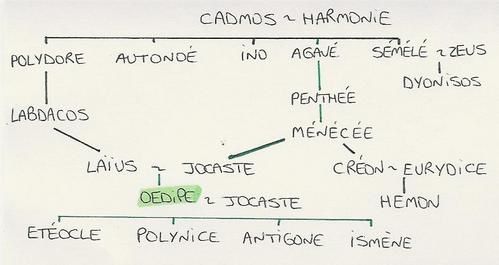 CADMOS ~ HARMONIE
POLYDORE AUTONOÉ INO AGAVÉ SÉMÉLÉ ~ ZEUS
DYONISOS
PENTHÉE
LABDACOS
MÉNÉCÉE
LAÏUS ~ JOCASTE CRÉON ~ EURYDICE
OEDIPE ~ JOCASTE HEMON
ETÉOCLE POLYNICE ANTIGONE ISMÈNE